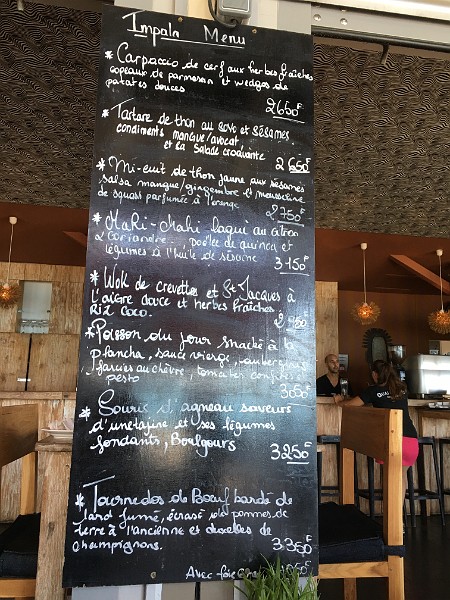 Impala Menu
* Carpaccio de cerf aux herbes fraîches
copeaux de parmesan et wedges de
patates douces
2650F
* Tartare de thon au soyo et sésames,
condiments mangue/avocat
et sa salade croquante
2650F
* Mi-cuit de thon jaune aux sésames
salsa mangue/gingembre et mousseline
de squash parfumée à l'orange
2750F
* Mahi-Mahi laqué au citron
& coriandre, poêlée de quinoa et
légumes à l'huile de sésame
3150F
* Wok de crevettes et St Jacques à
l'aigre douce et herbes fraîches,
Riz Coco.
* Poisson du jour snacké à la
plancha, sauce vierge, aubergines
farcies au chèvre, tomates confites
pesto
3050F
* Souris d'agneau saveurs
d'une tajine et ses légumes
fondants, Boulgours
3250F
* Tournedos de Boeuf bardé de
lard fumé, écrasé de pommes de
terre à l'ancienne et duxelles de
champignons.
3350F
Avec foie